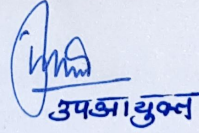 उपआयुक्त